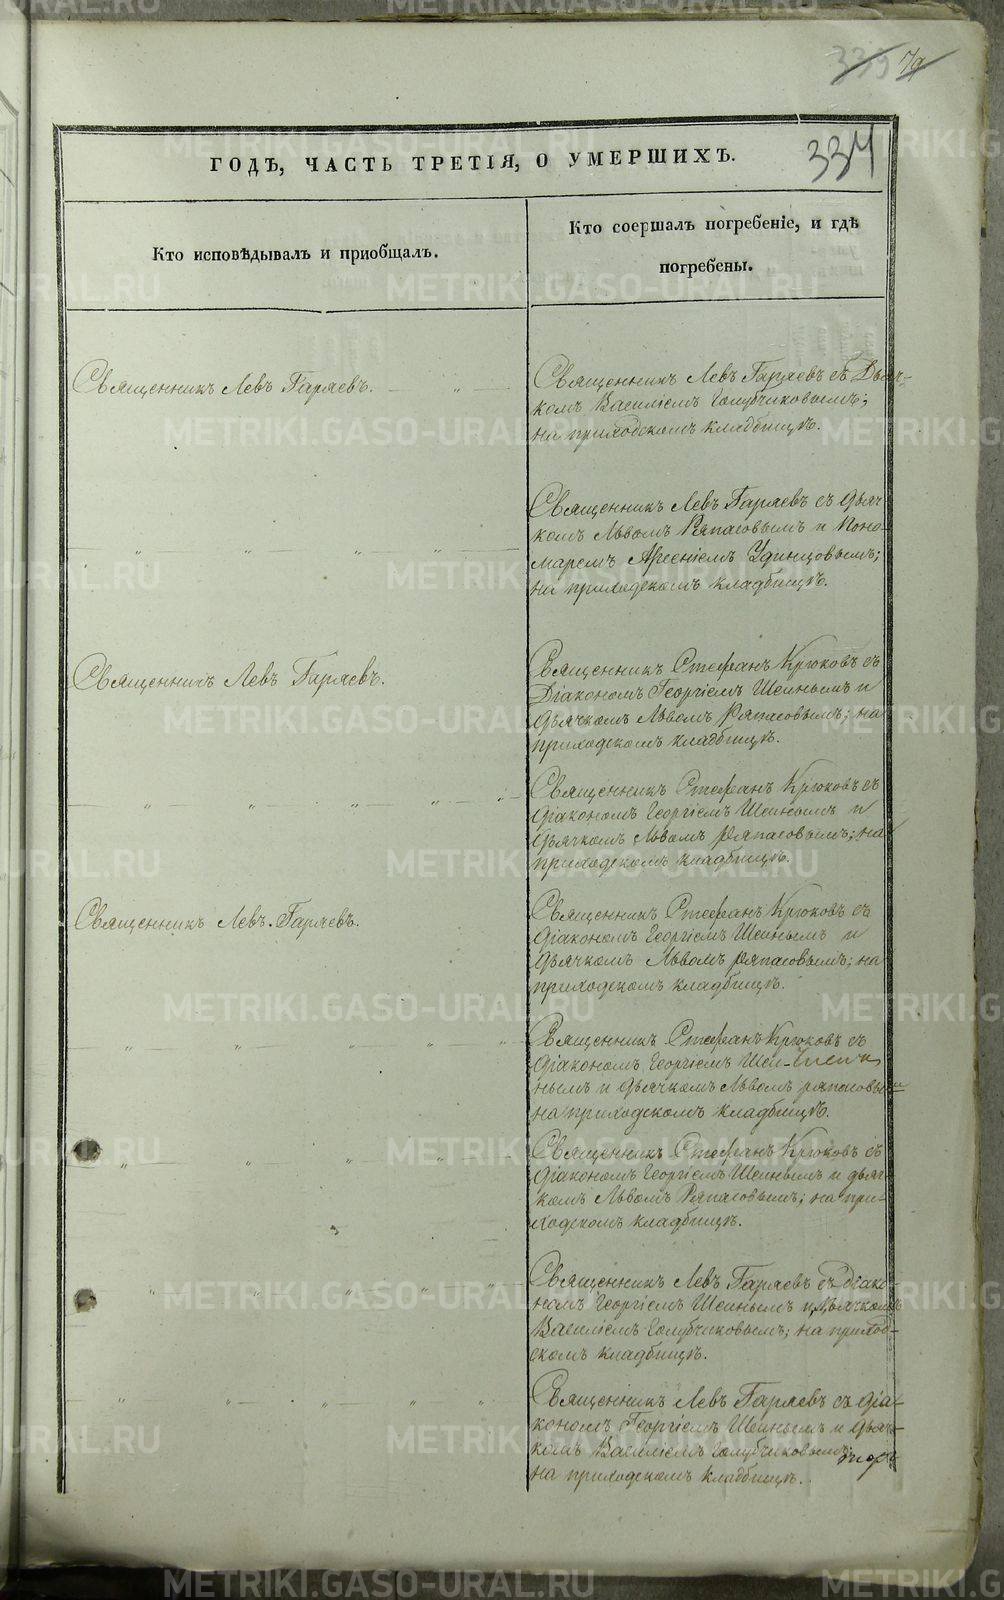 339 79
334
ГОДѢ, ЧАСТЬ ТРЕТІЯ, О УМЕРШИХЪ.
Кто исповѣдывалъ и пріобщалъ.
Кто соершалъ погребеніе, и гдѣ
погребены.
Священникъ Левъ Гаряевъ.
Священникъ Левъ Гаряевъ съ Дьяч-
комъ Василіемъ Голубчиковымъ;
на приходскомъ кладбищѣ.
Священникъ Левъ Гаряевъ съ дьяч
комъ Львомъ Ряпасовымъ и Поно-
маремъ Арсеніемъ Удинцовымъ;
на приходскомъ кладбищѣ.
Священникъ Левъ Гаряевъ.
Священникъ Стефанъ Крюковъ съ
Діакономъ Георгіемъ Шеинымъ и
дьячкомъ Львомъ Ряпасовымъ; на
приходскомъ кладбищѣ.
Священникъ Стефанъ Крюковъ съ
діакономъ Георгіемъ Шеинымъ и
дьячкомъ Львомъ Ряпасовымъ; на
приходскомъ кладбищѣ.
Священникъ Левъ Гаряевъ.
Священникъ Стефанъ Крюковъ съ
діакономъ Георгіемъ Шеинымъ и
дьячкомъ Львомъ Ряпасовымъ; на
приходскомъ кладбищѣ.
Священникъ Стефанъ Крюковъ съ
діакономъ Георгіемъ Шеи-
нымъ и дьячкомъ Львомъ Ряпасовым
на приходскомъ кладбищѣ.
Священникъ Стефанъ Крюковъ съ
діакономъ Георгіемъ Шеинымъ и дьяч-
комъ Львомъ Ряпасовымъ; на при-
ходскомъ кладбищѣ.
Священникъ Левъ Гаряевъ съ діако-
номъ Георгіемъ Шеинымъ и дьячкомъ
Василіемъ Голубчиковымъ; на приход-
скомъ кладбищѣ.
Священникъ Левъ Гаряевъ съ діа-
кономъ Георгіемъ Шеинымъ и дьяч-
комъ Василіемъ Голубчиковымъ;
на приходскомъ кладбищѣ.
METRIKI.GASO-URAL.RU